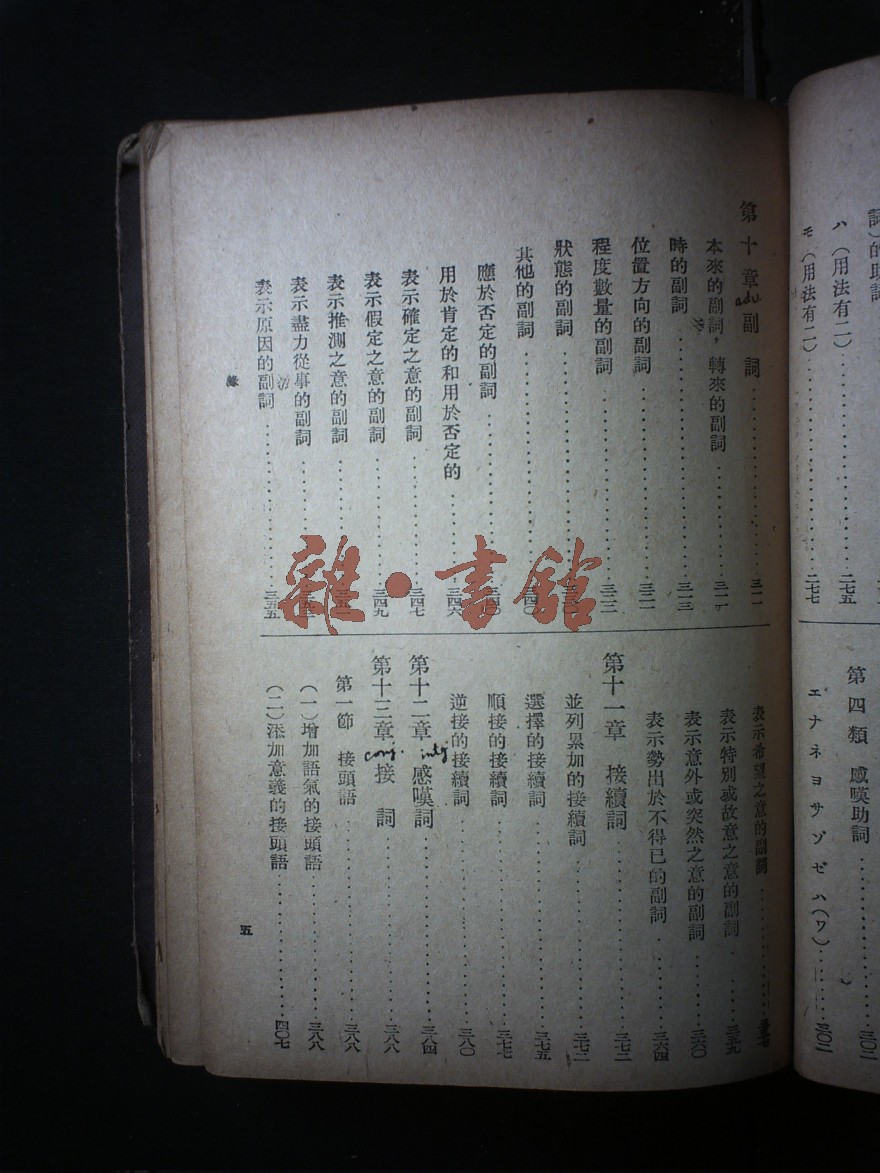 詞)的助詞
ハ (用法有二)……二七五
モ (用法有二)……二七七
第四類 感嘆助詞……三〇二
エ ナ ネ ヨ サ ゾ ゼ ハ(ワ)……三〇二
第十章 副詞……三一一
adv.
本來的副詞，轉來的副詞……三一一
時的副詞……三一三
位置方向的副詞……三二一
程度數量的副詞
狀態的副詞
其他的副詞……三四〇
應於否定的副詞
用於肯定的和用於否定的……三四六
表示確定之意的副詞……三四七
表示假定之意的副詞……三四九
表示推測之意的副詞
表示盡力從事的副詞
表示原因的副詞……三五五
表示希望之意的副詞
表示特別或故意之意的副詞……三五九
表示意外或突然之意的副詞……三六〇
表示勢出於不得已的副詞……三六四
第十一章 接續詞……三七二
並列累加的接續詞……三七二
選擇的接續詞……三七五
順接的接續詞……三七七
逆接的接續詞……三八〇
第十二章 感嘆詞……三八四
intj
第十三章 接詞……三八八
conj.
第一節 接頭語……三八八
(一)增加語氣的接頭語……三八八
(二)添加意義的接頭語……四〇七
錄
五
雜·書館